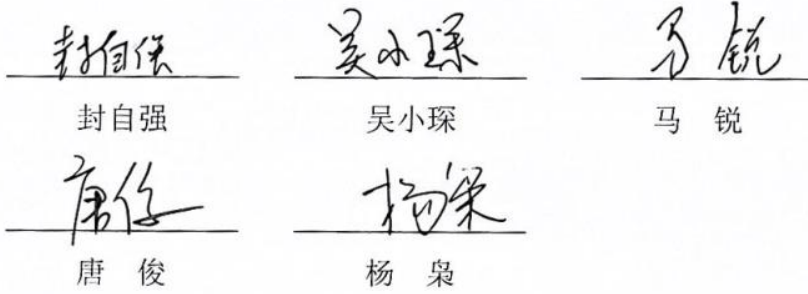 封自强 吴小琛 马锐
封自强 吴小琛 马 锐
唐俊 杨枭
唐 俊 杨 枭